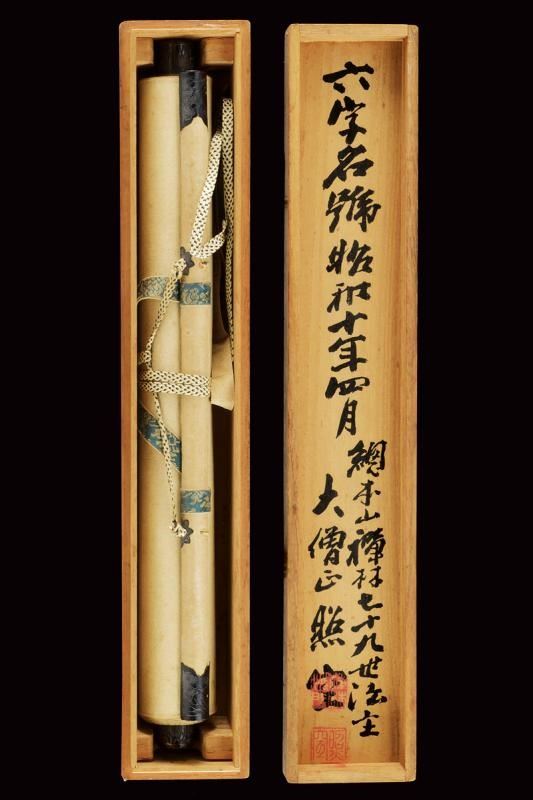 六字名號昭和十年四月
總本山禪林七十九世法主
大僧正照空